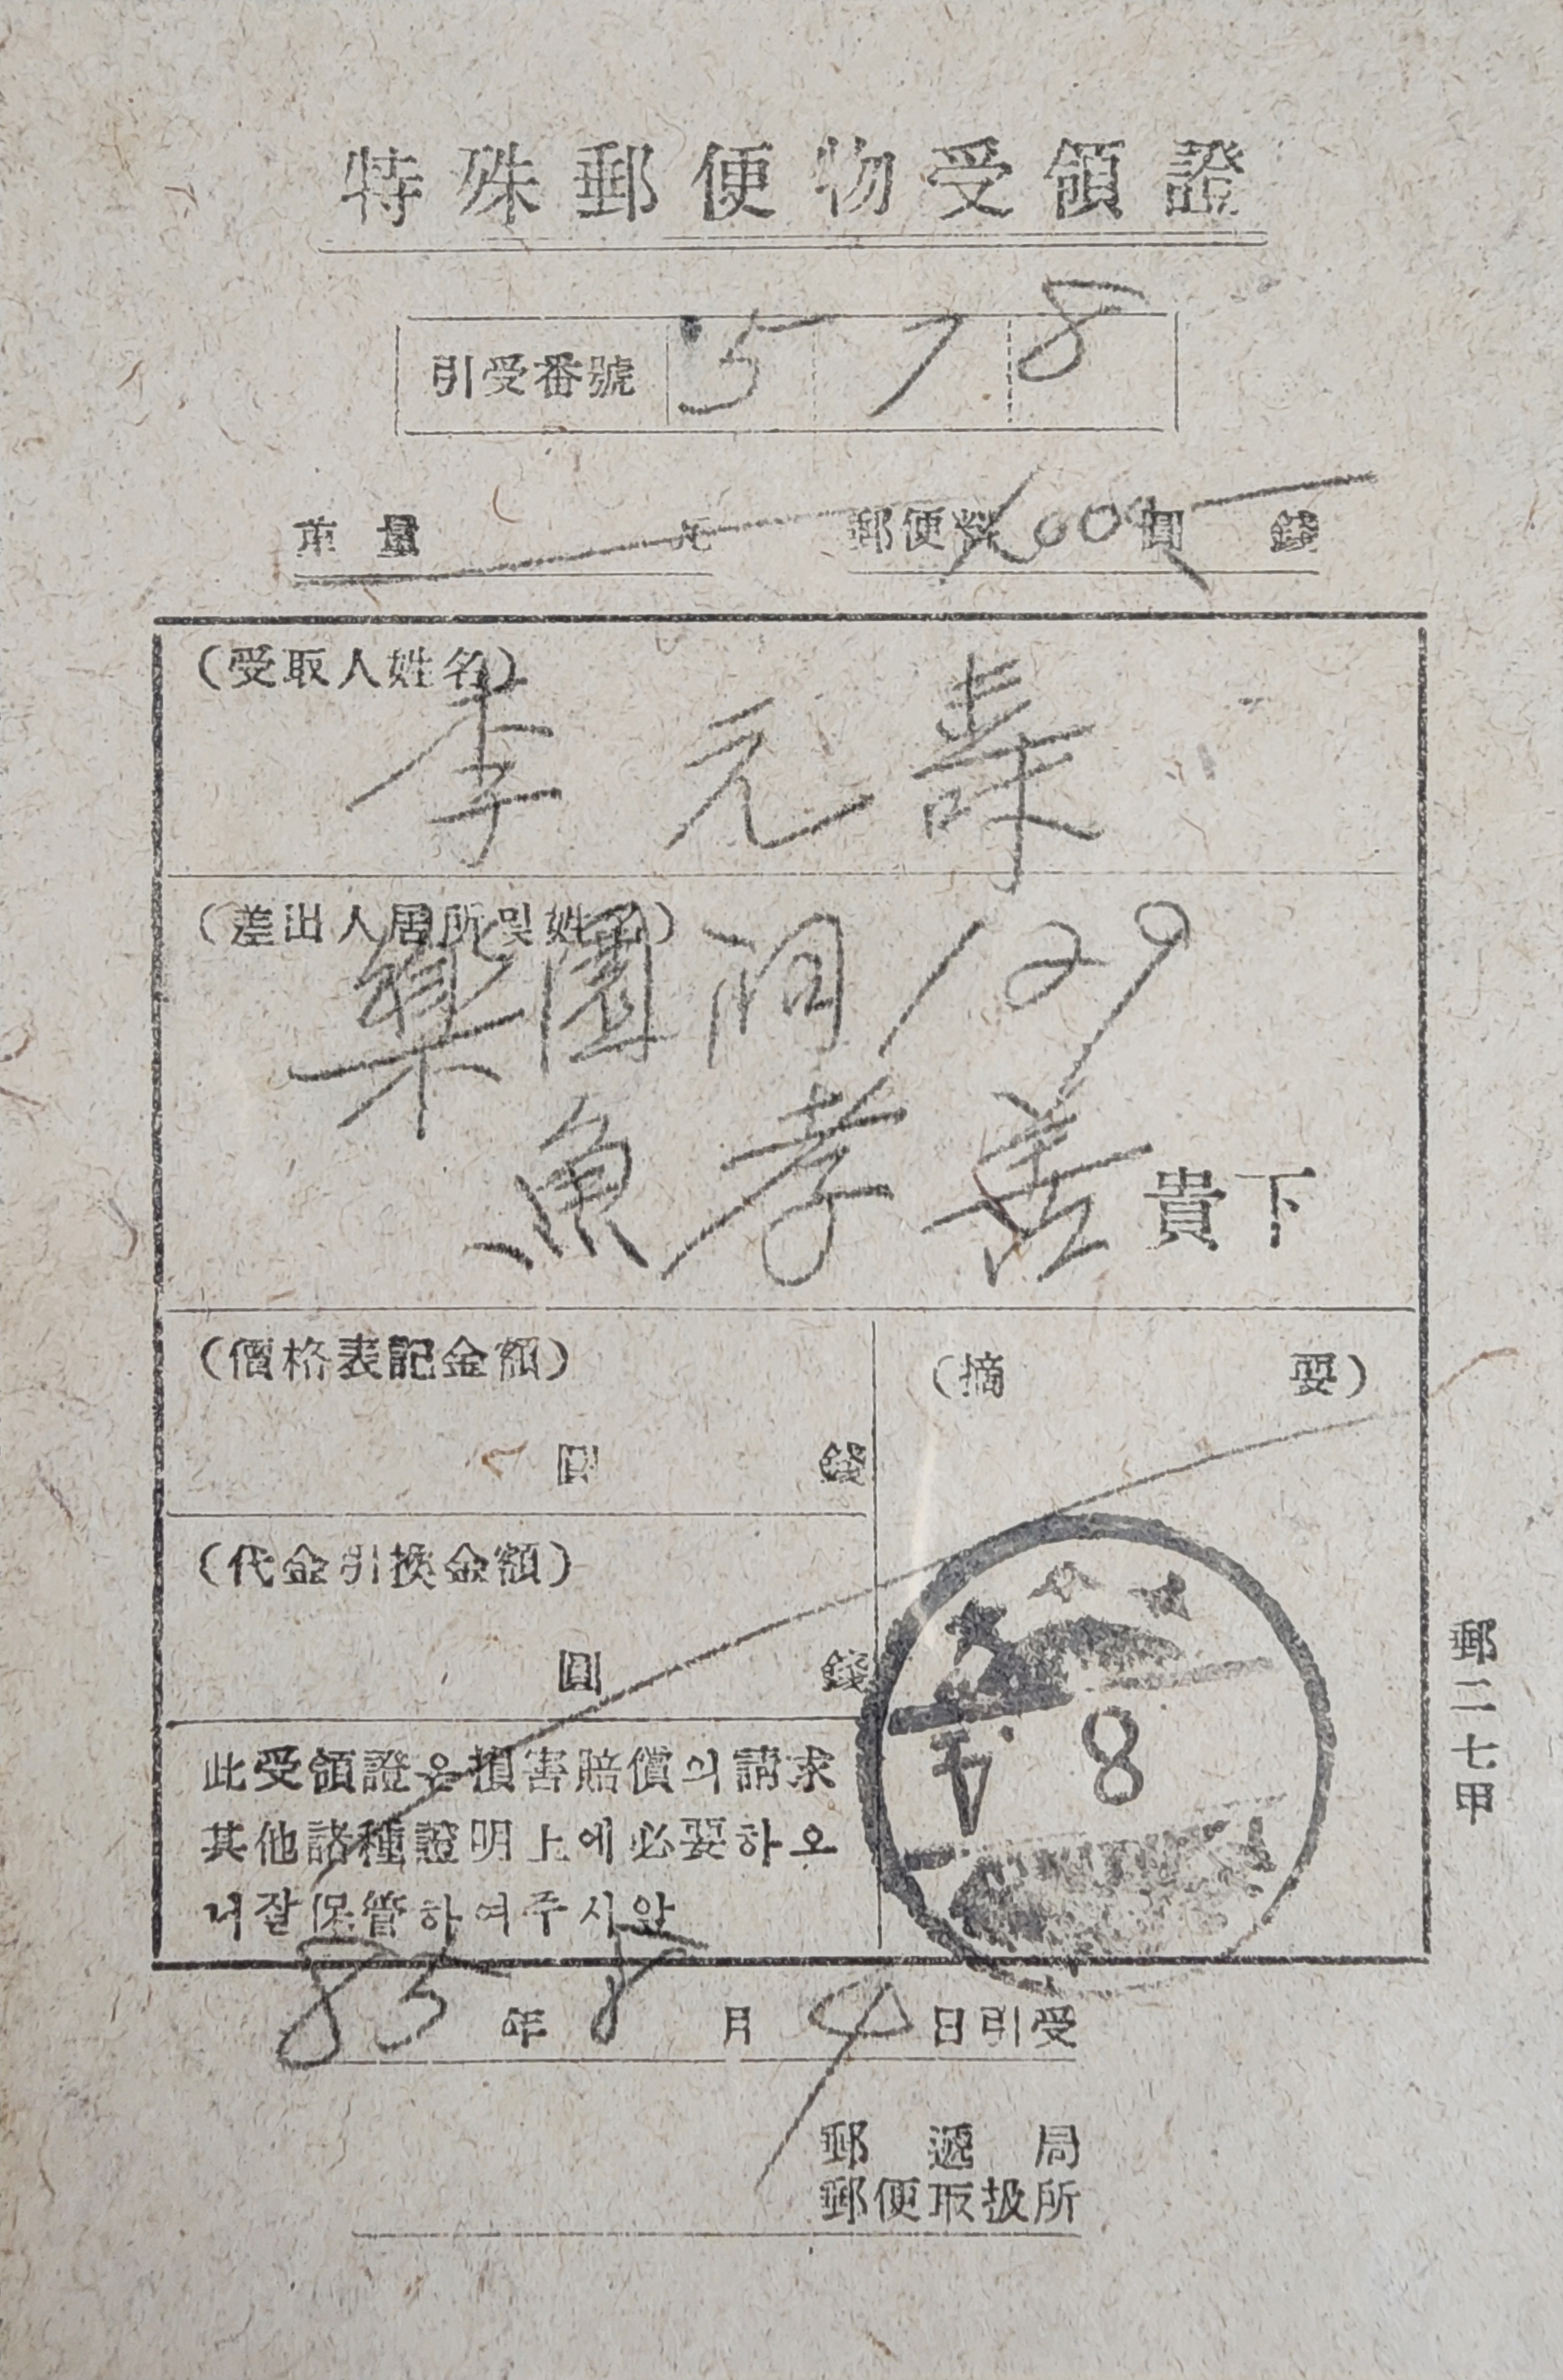 特殊郵便物受領證
引受番號 578
重量 瓦 郵便料 圓 錢
(受取人姓名)
李元
(差出人居所및姓名)
樂園洞129
魚孝善 貴下
(價格表記金額)
圓 錢
(摘要)
(代金引換金額)
圓 錢
8
此受領證은損害賠償의請求
其他諸種證明上에必要하오
니잘保管하여주시앞
郵二七甲
85年8月9日引受
郵遞局
郵便取扱所